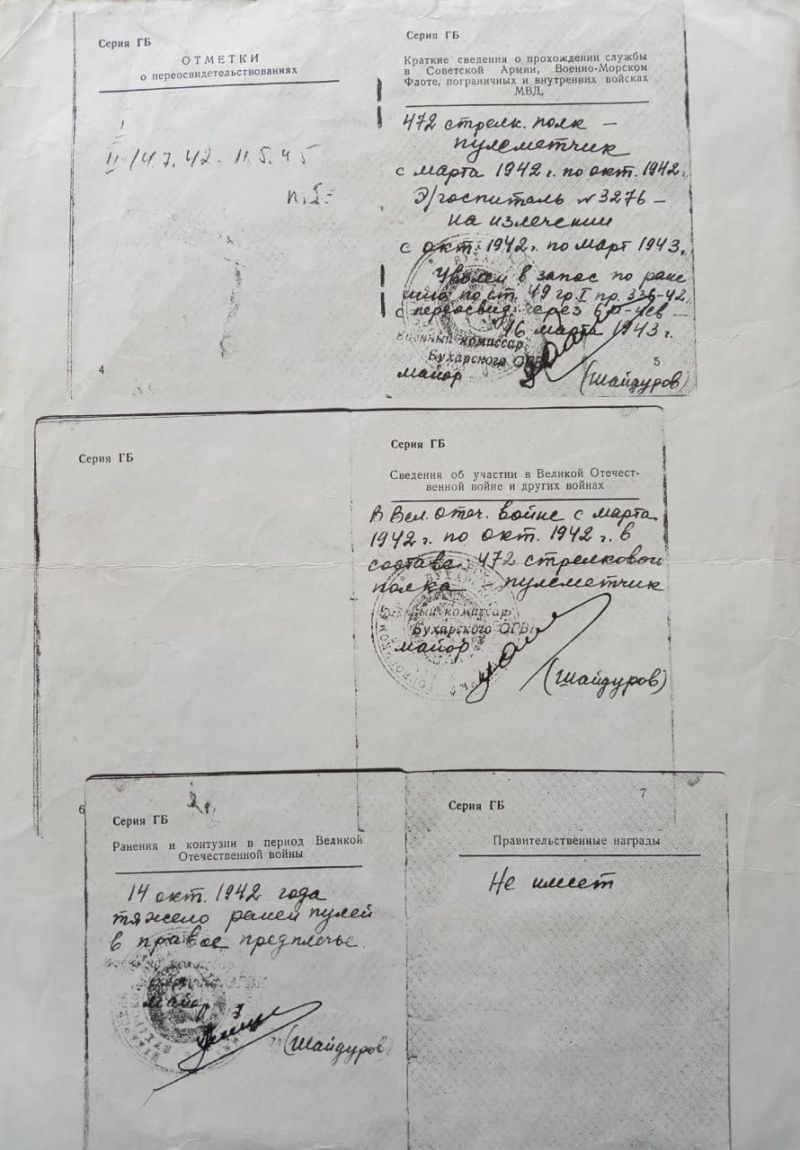 Серия ГБ
ОТМЕТКИ
о переосвидетельствованиях
4
Серия ГБ
Краткие сведения о прохождении службы
в Советской Армии, Военно-Морском
Флоте, пограничных и внутренних войсках
МВД,
472 стрелк. полк –
пулеметчик
с марта 1942 г. по окт. 1942г.
Э/госпиталь №3276 –
на излечении
с окт. 1942г. по март 1943г.
Уволен в запас по ране
нию по ст. 49 гр. I пр. 336-42,
с переосвид. через 6
16 марта 1943 г.
Военный комиссар
Бухарского ОГВК
майор
(Шайдуров)
5
Серия ГБ
6
Серия ГБ
Сведения об участии в Великой Отечест-
венной войне и других войнах
В Вел. отеч. войне с марта
1942 г. по окт. 1942 г. в
составе 472 стрелковой
полка – пулеметчик
Военный комиссар
Бухарского ОГВК
майор
(Шайдуров)
7
Серия ГБ
Ранения и контузии в период Великой
Отечественной войны
14 окт. 1942 года
тяжело ранен пулей
в правое предплечье.
майор
(Шайдуров)
Серия ГБ
Правительственные награды
Не имеет